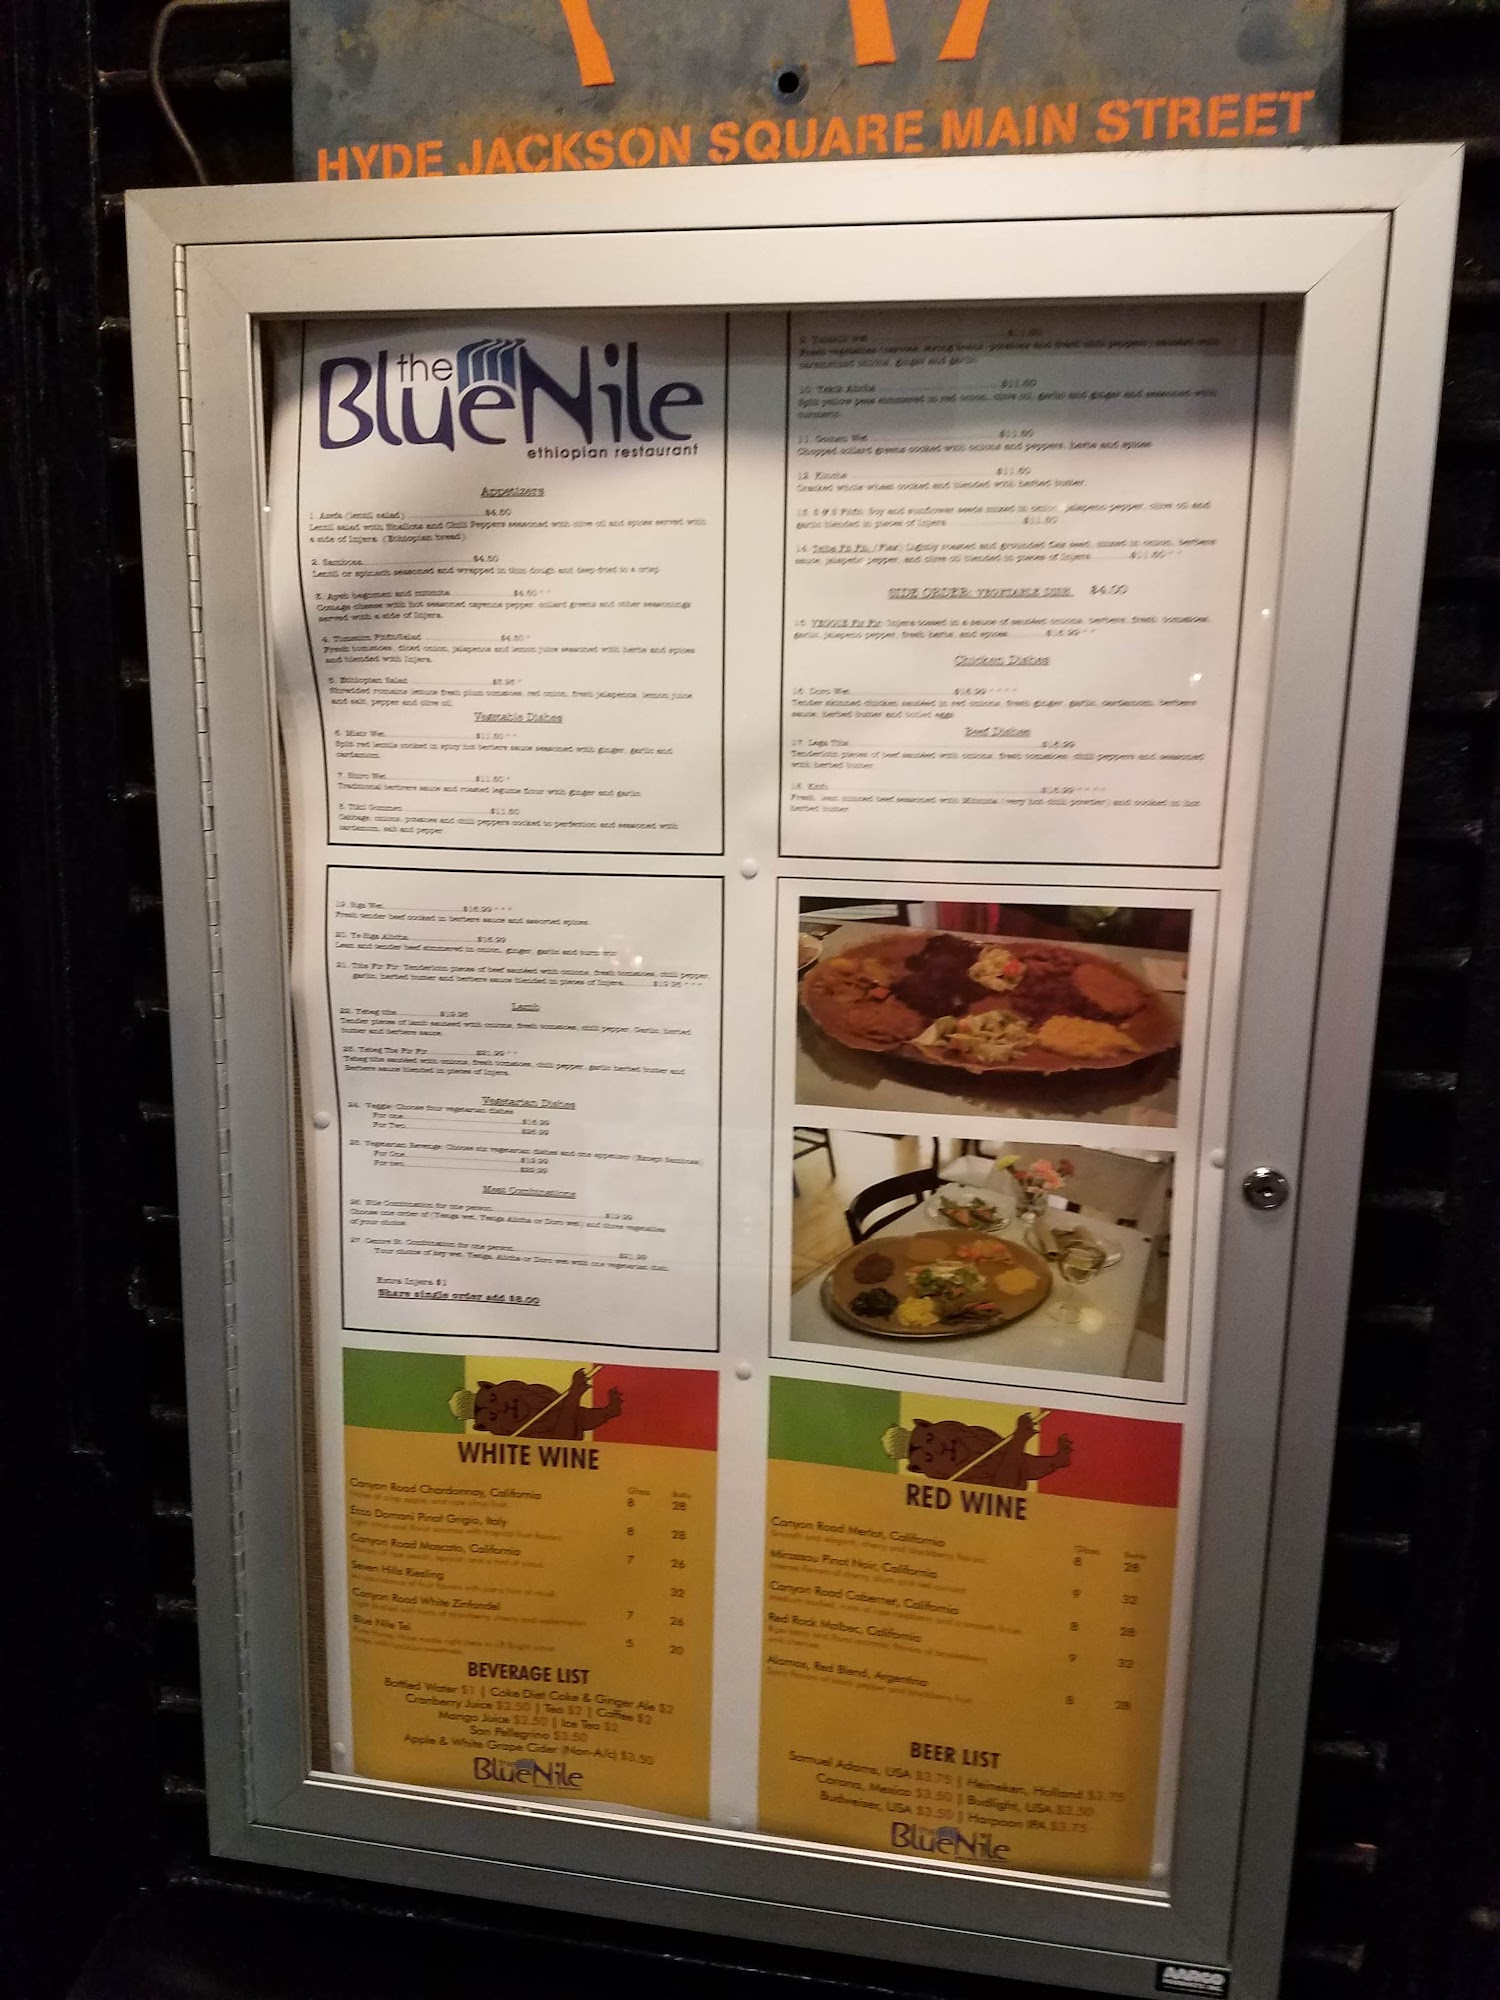 HYDE JACKSON SQUARE MAIN STREET
the
BlueNile
ethiopian restaurant
Appetizers
1. Azefa (lentil salad) $4.50
Lentil salad with Shallots and Chili Peppers seasoned with olive oil and spices served with
a side of Injera. (Ethiopian bread)
2. Sambosa $4.50
Lentil or spinach seasoned and wrapped in thin dough and deep-fried to a crisp.
3. Ayeb begomen and mitmita $4.50 **
Cottage cheese with hot seasoned cayenne pepper, collard greens and other seasonings
served with a side of Injera.
4. Timatim Fitfit/Salad $4.50 *
Fresh tomatoes, diced onion, jalapenos and lemon juice seasoned with herbs and spices
and blended with Injera.
5. Ethiopian Salad $3.95 *
Shredded romaine lettuce fresh plum tomatoes, red onion, fresh jalapenos, lemon juice
and salt, pepper and olive oil.
Vegetable Dishes
6. Misir Wet $11.50 **
Split red lentils cooked in spicy hot berbere sauce seasoned with ginger, garlic and
cardamom.
7. Shiro Wet $11.50 *
Traditional berbere sauce and roasted legume flour with ginger and garlic
8. Tikil Gommen $11.50
Cabbage, onions, potatoes and chili peppers cooked to perfection and seasoned with
cardamom, salt and pepper
$11.50
Fresh vegetables (carrots, string beans, potatoes and fresh chili peppers) sautéed with
caramelized onions, ginger and garlic
10. Yekik Alicha $11.50
Split yellow peas simmered in red onion, olive oil, garlic and ginger and seasoned with
turmeric.
11. Gomen Wet $11.50
Chopped collard greens cooked with onions and peppers, herbs and spices
12. Kinche $11.50
Cracked whole wheat cooked and blended with herbed butter.
13. S & S Fitfit: Soy and sunflower seeds mixed in onion, jalapeno pepper, olive oil and
garlic blended in pieces of Injera $11.50
14. Telba Fit Fit: (Flax) Lightly roasted and grounded flax seed, mixed in onion, berbere
sauce, jalapeno pepper, and olive oil blended in pieces of Injera $11.50 **
SIDE ORDER: VEGETABLE DISH $4.00
15. VEGGIE Fir Fir: Injera tossed in a sauce of sautéed onions, berbere, fresh tomatoes,
garlic, jalapeno pepper, fresh herbs, and spices $16.99 **
Chicken Dishes
16. Doro Wet $16.99 ****
Tender skinned chicken sautéed in red onions, fresh ginger, garlic, cardamom, berbere
sauce, herbed butter and boiled eggs.
Beef Dishes
17. Lega Tibs $16.99
Tenderloin pieces of beef sautéed with onions, fresh tomatoes, chili peppers and seasoned
with herbed butter.
18. Kitfo $16.99 ****
Fresh, lean minced beef seasoned with Mitmita (very hot chili powder) and cooked in hot
herbed butter
19. Siga Wet $16.99 ***
Fresh tender beef cooked in berbere sauce and assorted spices
20. Ye Siga Alicha $16.99
Lean and tender beef simmered in onion, ginger, garlic and
21. Tibs Fir Fir: Tenderloin pieces of beef sautéed with onions, fresh tomatoes, chili pepper,
garlic, herbed butter and berbere sauce blended in pieces of Injera $19.95 ***
Lamb
22. Yebeg tibs $19.95
Tender pieces of lamb sautéed with onions, fresh tomatoes, chili pepper, Garlic, herbed
butter and berbere sauce.
23. Yebeg Tibs Fir Fir $21.99 **
Yebeg tibs sautéed with onions, fresh tomatoes, chili pepper, garlic herbed butter and
Berbere sauce blended in pieces of Injera.
Vegetarian Dishes
24. Veggie: Choose four vegetarian dishes
For one $16.99
For Two $26.99
25. Vegetarian Revenge: Choose six vegetarian dishes and one appetizer (Except Sambosa)
For One $19.99
For two $29.99
Meat Combinations
26. Nile Combination for one person $19.99
Choose one order of (Yesiga wet, Yesiga Alicha or Doro wet) and three vegetables
of your choice
27. Centre St. Combination for one person $21.99
Your choice of key wet, Yesiga, Alicha or Doro wet with one vegetarian dish.
Extra Injera $1
Share single order add $8.00
WHITE WINE
Glass Bottle
Canyon Road Chardonnay, California 8 28
Notes of crisp apple, and ripe citrus fruit.
Ecco Domani Pinot Grigio, Italy 8 28
Light citrus and floral aromas with tropical fruit flavors
Canyon Road Moscato, California 7 26
Flavors of ripe peach, apricot, and a hint of citrus
Seven Hills Riesling 32
An abundance of fruit flavors with just a hint of
Canyon Road White Zinfandel 7 26
Light bodied with hints of strawberry, cherry and watermelon
Blue Nile Tej 5 20
Pure Honey Wine made right here in
BEVERAGE LIST
Bottled Water $1 | Coke Diet Coke & Ginger Ale $2
Cranberry Juice $2.50 | Tea $2 | Coffee $2
Mango Juice $2.50 | Ice Tea $2
San Pellegrino $3.50
Apple & White Grape Cider (Non-A/c) $3.50
the
BlueNile
RED WINE
Glass Bottle
Canyon Road Merlot, California 8 28
Smooth and elegant, cherry and blackberry flavors
Mirassou Pinot Noir, California 9 32
Intense flavors of cherry, plum and red currant
Canyon Road Cabernet, California 8 28
Medium bodied, notes of ripe raspberry and a smooth finish
Red Rock Malbec, California 9 32
Ripe berry and floral aromas, flavors of boysenberry
and cherries
Alamos, Red Blend, Argentina 8 28
Spicy flavors of black pepper and blackberry fruit
BEER LIST
Samuel Adams, USA $3.75 | Heineken, Holland $3.75
Corona, Mexico $3.50 | Budlight, USA $3.50
Budweiser, USA $3.50 | Harpoon IPA $3.75
the
BlueNile
AARCO